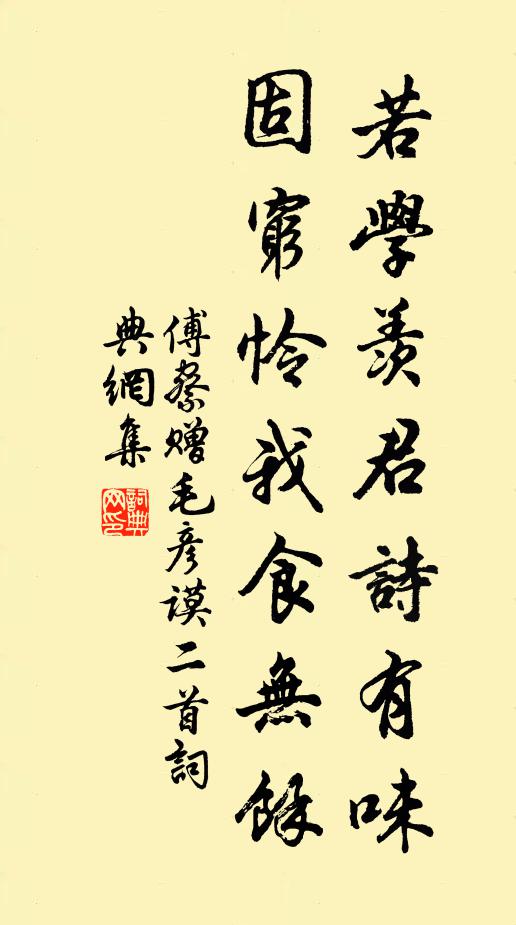 若學羨君詩有味
固窮怜我食無餘
傅察贈毛彥謨二首詞
典網集
詞典
网印